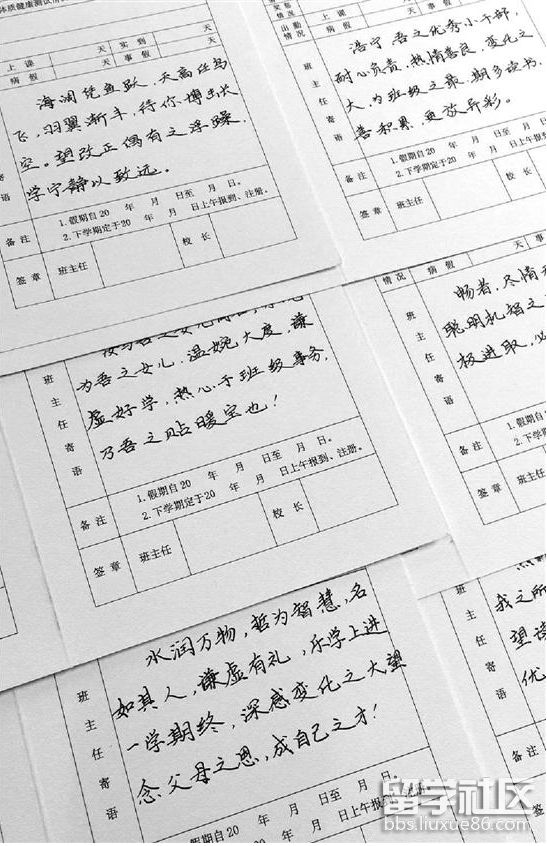 体质健康测试情况
上课 天 实到 天
病假 天 事假 天
海阔凭鱼跃，天高任鸟
飞，羽翼渐丰，待你搏击长
空。望改正偶有之浮躁，
学宁静以致远。
寄
语
备注
1.假期自20 年 月 日至 月 日。
2.下学期定于20 年 月 日上午报到、注册。
签章 班主任 校长
出勤
情况
上课
病假
浩宁 吾之优秀小干部，
耐心负责，热情善良，变化之
大，为班级之最，期多读书，
善积累，更放异彩。
寄
语
备注
1.假期自20 年 月 日至 月 日。
2.下学期定于20 年 月 日上午报到、注册。
签章 班主任 校长
为吾之女儿，温婉大度，谦
虚好学，热心于班级事务，
乃吾之贴暖宝也！
班主任寄语
备注
1.假期自20 年 月 日至 月 日。
2.下学期定于20 年 月 日上午报到、注册。
签章 班主任 校长
情况 病假 天 事
畅若，尽情
聪明机智之
极进取，必
班主任寄语
备注
1.假期自20
2.下学期定于20
签章 班主任
水润万物，哲为智慧，名
如其人，谦虚有礼，乐学上进
一学期终，深感变化之大望
念父母之恩，成自己之才！
班主任寄语
备注
1.假期自20 年 月 日至 月 日。
2.下学期定于20
班主任
我之所
望
优
班主任寄语
备注
留学社区
bbs.liuxue86.com